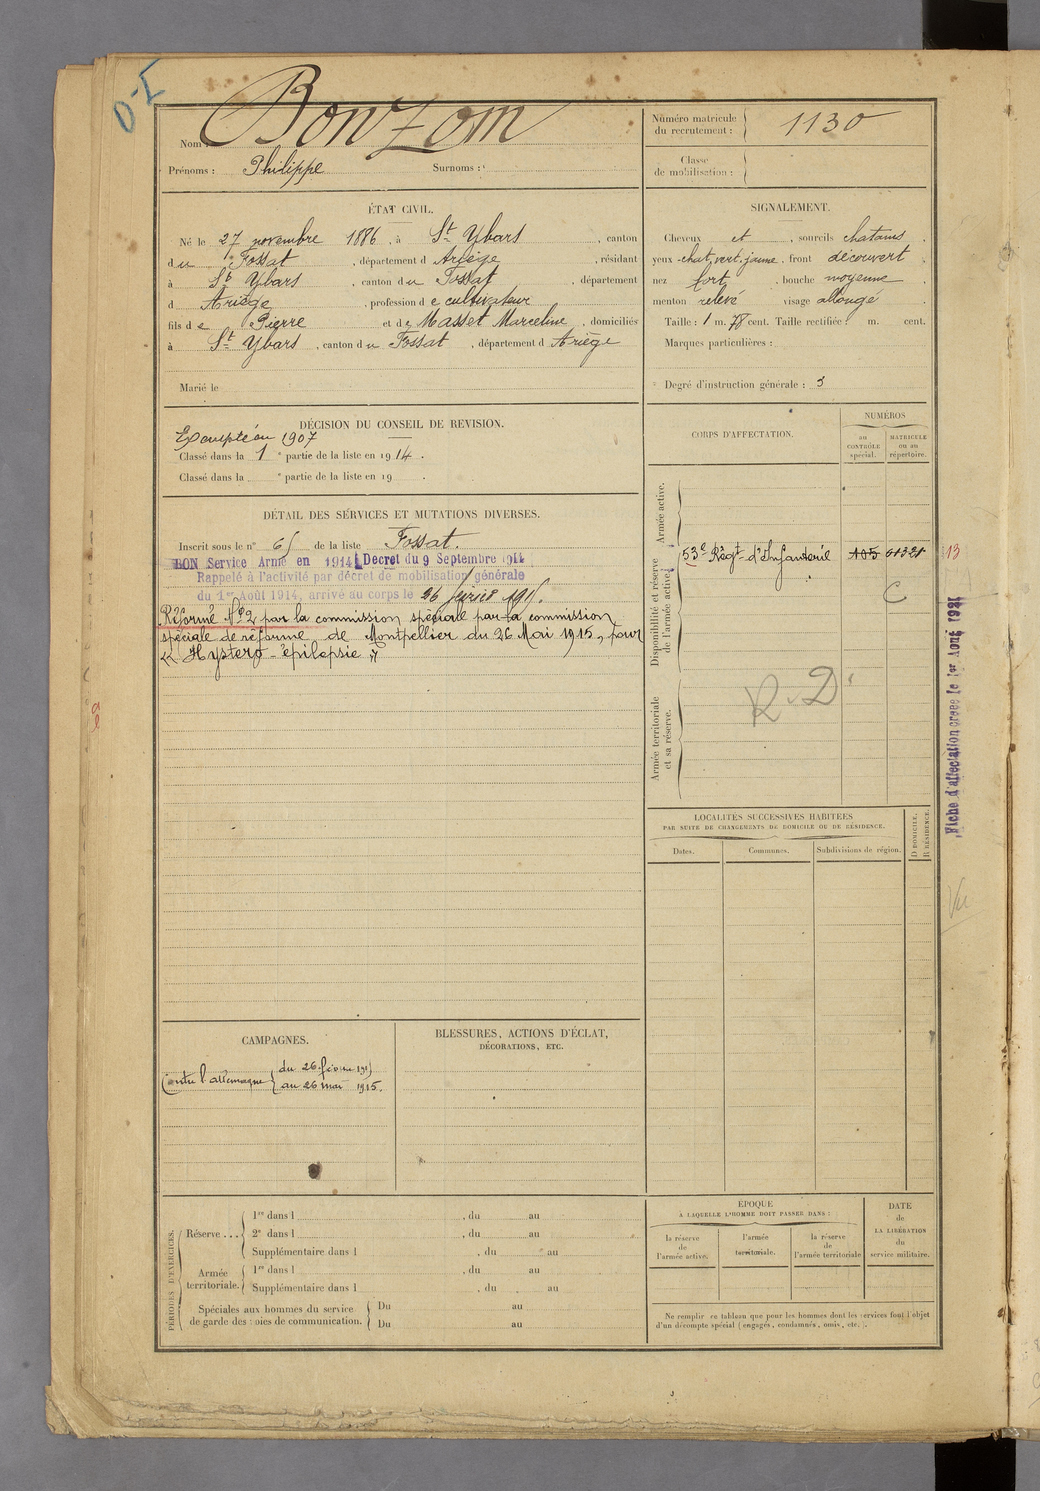 O-I
Nom : Bonzom
Prénoms : Philippe Surnoms :
Numéro matricule du recrutement : 1130
Classe de mobilisation :
ÉTAT CIVIL.
Né le 27 novembre 1886, à St Ybars, canton
du Fossat, département d Ariège, résidant
à St Ybars, canton du Fossat, département
d Ariège, profession de cultivateur
fils de Pierre et de Masset Marceline, domiciliés
à St Ybars, canton du Fossat, département d Ariège
Marié le
SIGNALEMENT.
Cheveux et , sourcils chatains
yeux chat. vert. jaune, front découvert
nez fort, bouche moyenne
menton relevé visage allongé
Taille : 1 m. 78 cent. Taille rectifiée : m. cent.
Marques particulières :
Degré d'instruction générale : 3
DÉCISION DU CONSEIL DE REVISION.
Exempté en 1907
Classé dans la 1e partie de la liste en 1914.
Classé dans la e partie de la liste en 19 .
DÉTAIL DES SERVICES ET MUTATIONS DIVERSES.
Inscrit sous le n° 65 de la liste Fossat.
BON Service Armé en 1914 Décret du 9 Septembre 1914
Rappelé à l'activité par décret de mobilisation générale
du 1er Août 1914, arrivé au corps le 26 février 1915.
Réformé No 2 par la commission spéciale par la commission
spéciale de réforme de Montpellier du 26 Mai 1915, pour
« Hystero-épilepsie »
CORPS D'AFFECTATION.
NUMÉROS
au CONTRÔLE spécial.
MATRICULE ou au répertoire.
Armée active.
Disponibilité et réserve de l'armée active.
53e Régt d'Infanterie 105 01321
13
C
Armée territoriale et sa réserve.
R.D
Fiche d'affectation créée le 1er Août 1921
Vu
LOCALITÉS SUCCESSIVES HABITÉES
PAR SUITE DE CHANGEMENTS DE DOMICILE OU DE RÉSIDENCE.
Dates. Communes. Subdivisions de région. D DOMICILE. R RÉSIDENCE.
CAMPAGNES.
Contre l'allemagne du 26 février 1915
au 26 mai 1915.
BLESSURES, ACTIONS D'ÉCLAT,
DÉCORATIONS, ETC.
PÉRIODES D'EXERCICES.
Réserve ... 1re dans l , du au
2e dans l , du au
Supplémentaire dans l , du au
Armée territoriale. 1re dans l , du au
Supplémentaire dans l , du au
Spéciales aux hommes du service Du au
de garde des voies de communication. Du au
ÉPOQUE
A LAQUELLE L'HOMME DOIT PASSER DANS :
la réserve de l'armée active.
l'armée territoriale.
la réserve de l'armée territoriale
DATE de LA LIBÉRATION du service militaire.
Ne remplir ce tableau que pour les hommes dont les services font l'objet
d'un décompte spécial (engagés, condamnés, omis, etc.).